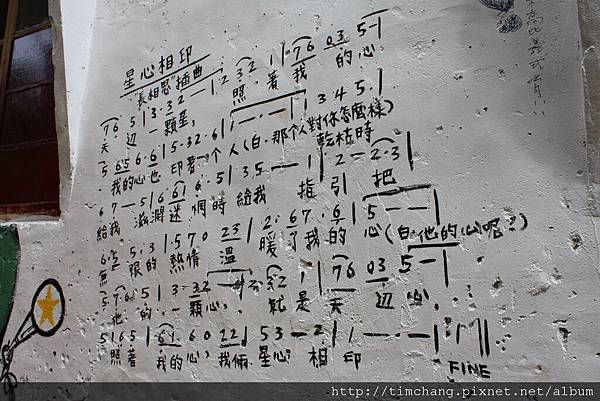 星心相印
"長相思"插曲
7 6 5 1 | 3· 3 2 — | 1· 2 3 2 1 | 7 6 0 3 5 — |
天 邊 一顆星, 照著我 的心
5 6 5 6· 6 | 5· 3 2· 6 | 1 — · — | 3 4 5· 1 |
我的心也 印著一個人(白·那個人對你怎麼樣) 乾枯時
6 7 — 5 | 6 6 1 6· 5 | 3 5 — — 1 | 2 — 2· 3 |
給我 滋潤 迷惘時 給我 指引 把
6· 5 5· 3 | 5 7 0 2 3 | 2· 6 7· 6 | 5 — — |
無限的 熱情 溫 暖了我的 心(白·他的心呢?)
5 7 6 5 | 3 — 3 2 — | 1· 2 3 2 1 | 7 6 0 3 5 — |
他 的 一顆心, 就是天 邊 星,
5 1 6 5 | 6 1 6 0 2 2 | 5 3 — 2 | 1 — · — |
照著 我的心, 我倆 星心 相 印
FINE
http://timchang.pixnet.net/album